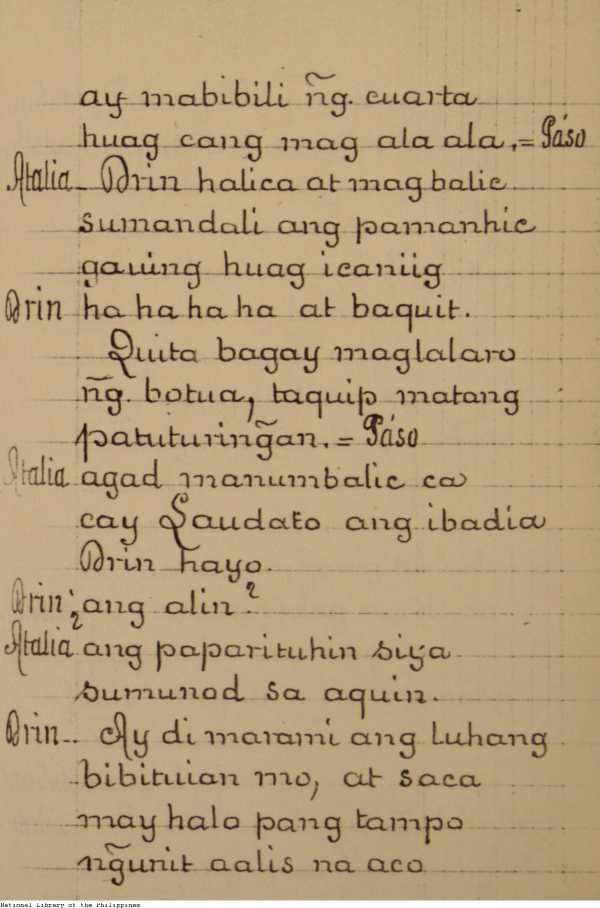 ay mabibili ñg. cuarta
huag cang mag ala ala.= Páso
Atalia - Drin halica at magbalic
sumandali ang pamanhic
gauing huag icaniig
Drin ha ha ha ha at baquit.
Quita bagay maglalaro
ñg. botua, taquip matang
patuturing̃an.= Páso
Atalia agad manumbalic ca
cay Laudato ang ibadia
Drin hayo.
Drin ¿ang alin?
Atalia ang paparituhin siya
sumunod sa aquin.
Drin.. Ay di marami ang luhang
bibituian mo, at saca
may halo pang tampo
ng̃unit aalis na aco
National Library of the Philippines